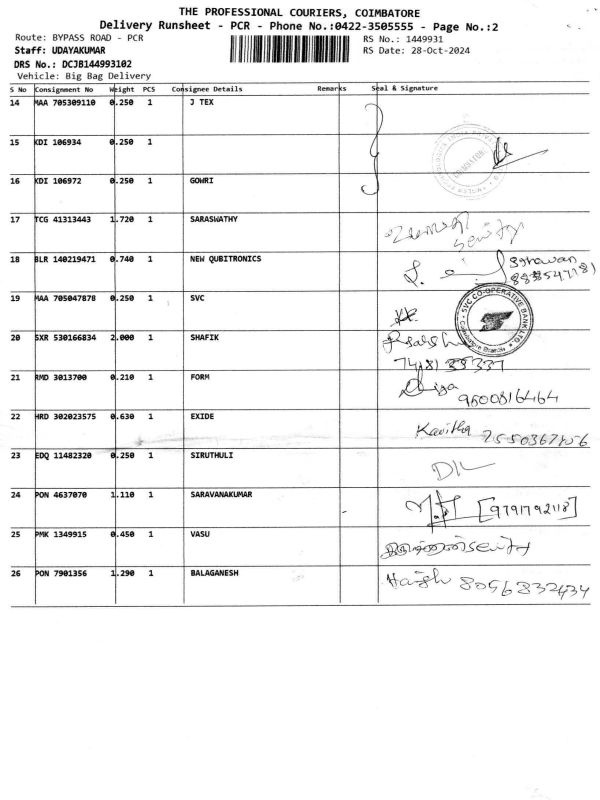 THE PROFESSIONAL COURIERS, COIMBATORE
Delivery Runsheet - PCR - Phone No.:0422-3505555 - Page No.:2
Route: BYPASS ROAD - PCR RS No.: 1449931
Staff: UDAYAKUMAR RS Date: 28-Oct-2024
DRS No.: DCJB144993102
Vehicle: Big Bag Delivery
S No Consignment No Weight PCS Consignee Details Remarks Seal & Signature
14 MAA 705309110 0.250 1 J TEX
15 KDI 106934 0.250 1
16 KDI 106972 0.250 1 GOWRI
17 TCG 41313443 1.720 1 SARASWATHY
18 BLR 140219471 0.740 1 NEW QUBITRONICS
19 MAA 705047878 0.250 1 SVC
SVC CO-OPERATIVE BANK LTD.
Coimbatore Branch
20 SXR 530166834 2.000 1 SHAFIK
21 RMD 3013700 0.210 1 FORM 9600816464
22 HRD 302023575 0.630 1 EXIDE Kavitha
23 EDQ 11482320 0.250 1 SIRUTHULI
24 PON 4637070 1.110 1 SARAVANAKUMAR [9791792118]
25 PMK 1349915 0.450 1 VASU
26 PON 7901356 1.290 1 BALAGANESH Harish 8056832434